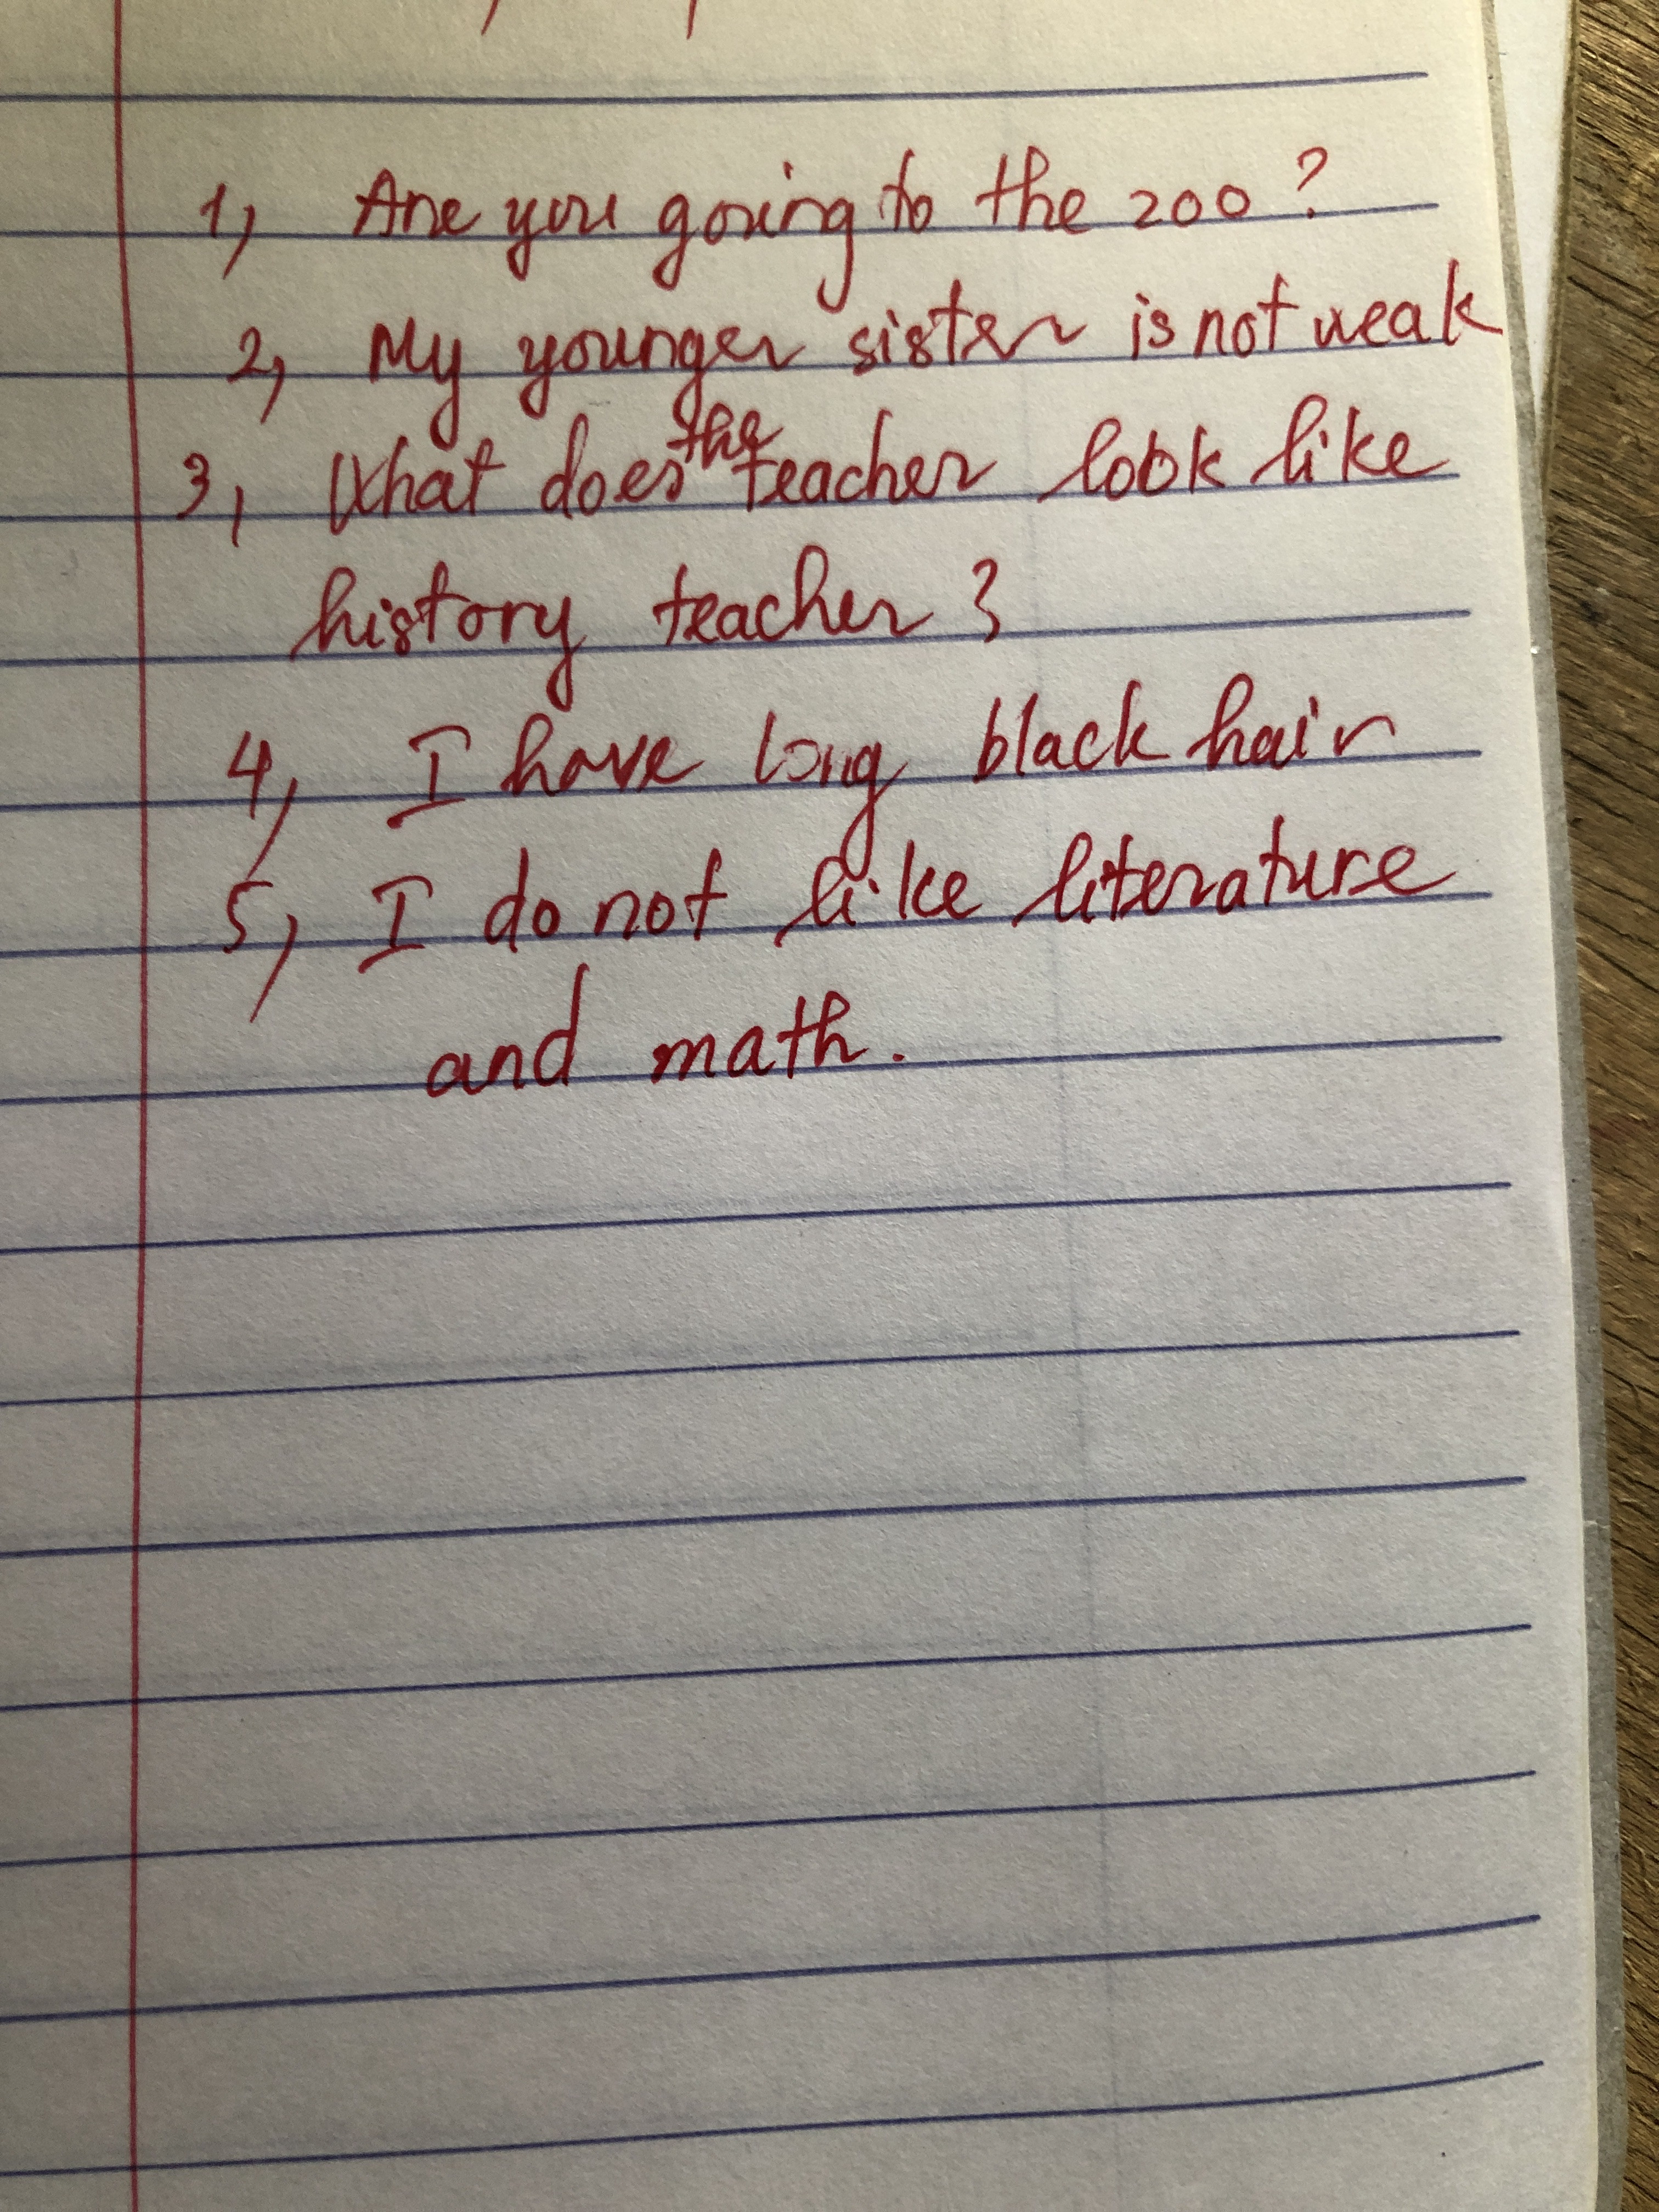 1, Are you going to the zoo ?
2, My younger sister is not weak
3, What does the teacher look like
history teacher ?
4, I have long black hair
5, I do not like literature
and math.